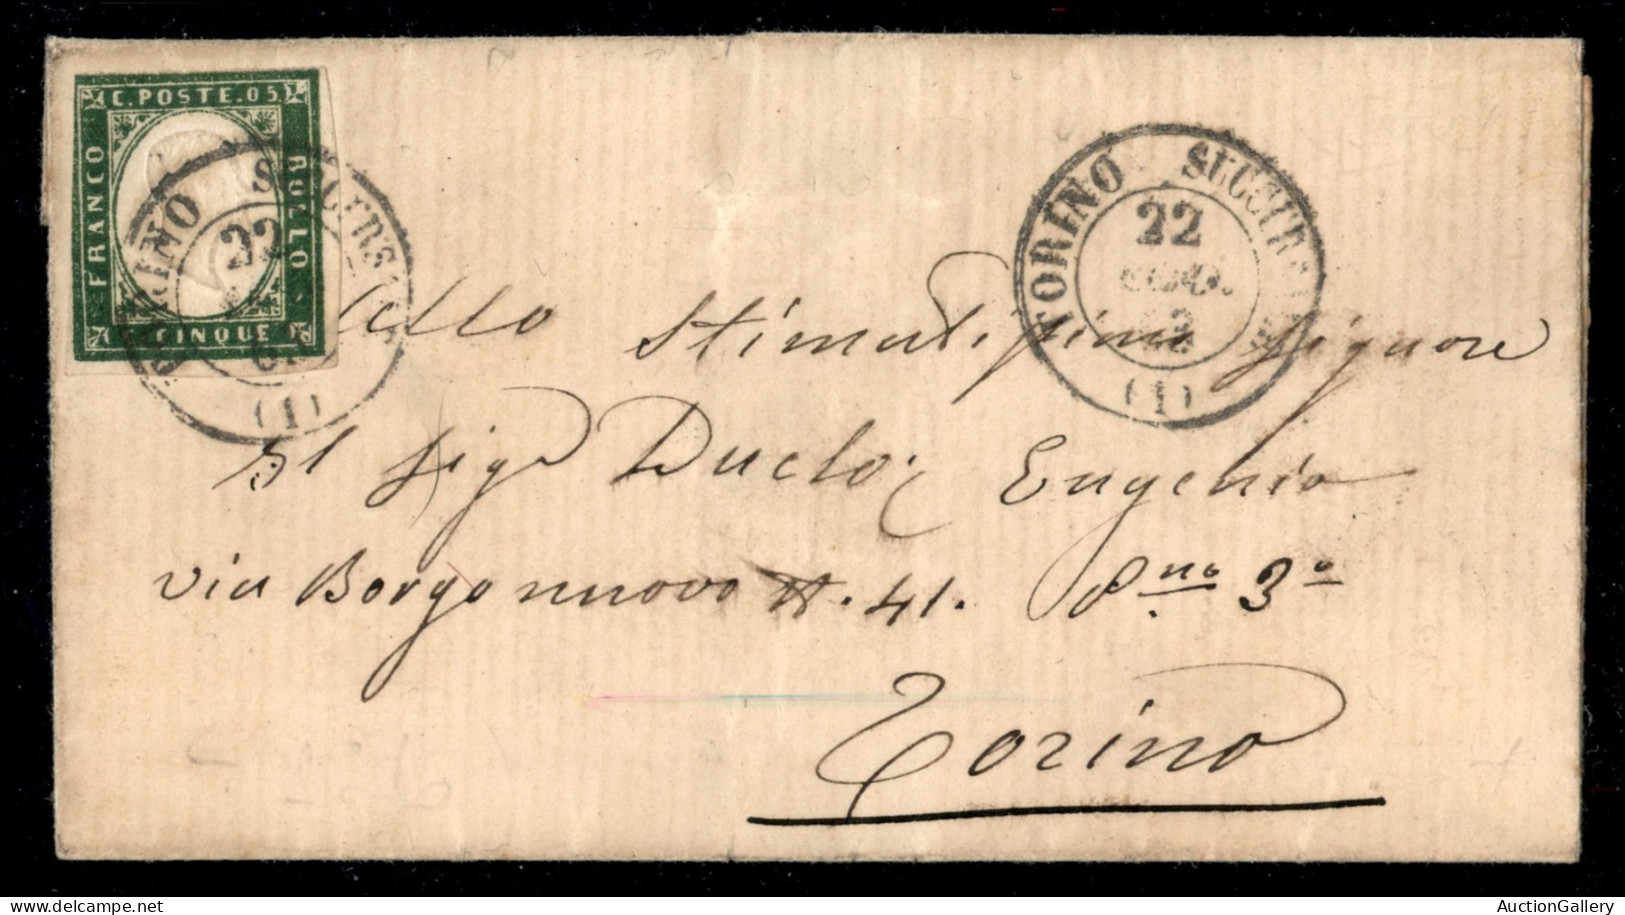 C. POSTE. 05
FRANCO
BOLLO
CINQUE
TORINO SUCCURS
22
(1)
TORINO SUCCURS
22
(1)
Allo Stimatissimo Signore
Il Sig Eugenio
via Borgonuovo N. 41. Pno 3o
Torino
AuctionGallery